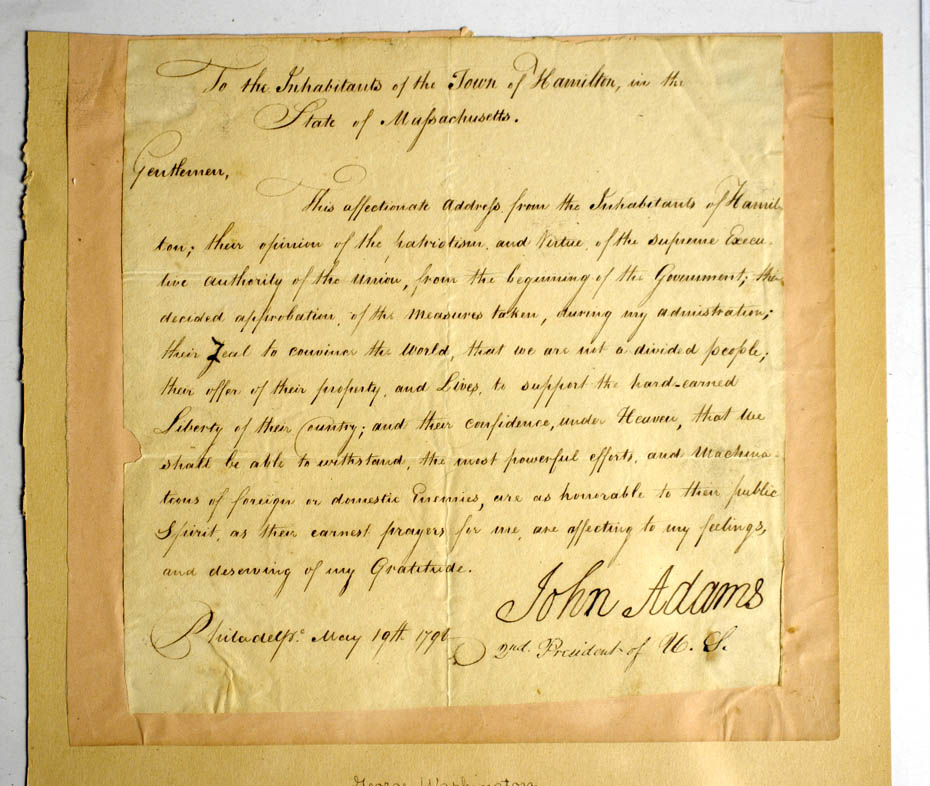 To the Inhabitants of the Town of Hamilton, in the
State of Massachusetts.
Gentlemen,
This affectionate Address from the Inhabitants of Hamil-
ton; their opinion of the patriotism, and Virtue, of the supreme Execu-
tive authority of the Union, from the beginning of the Government; the
decided approbation, of the Measures taken, during my admistration;
their Zeal to convince the World, that we are not a divided people;
their offer of their property, and Lives, to support the hard-earned
Liberty of their Country; and their confidence, under Heaven, that we
shall be able to withstand, the most powerful efforts, and Machina-
tions of foreign or domestic Enemies, are as honorable to their public
Spirit, as their earnest prayers for me, are affecting to my feelings,
and deserving of my Gratitude.
John Adams
Philadelpa. May 19th. 179
2nd. President of U. S.
George Washington